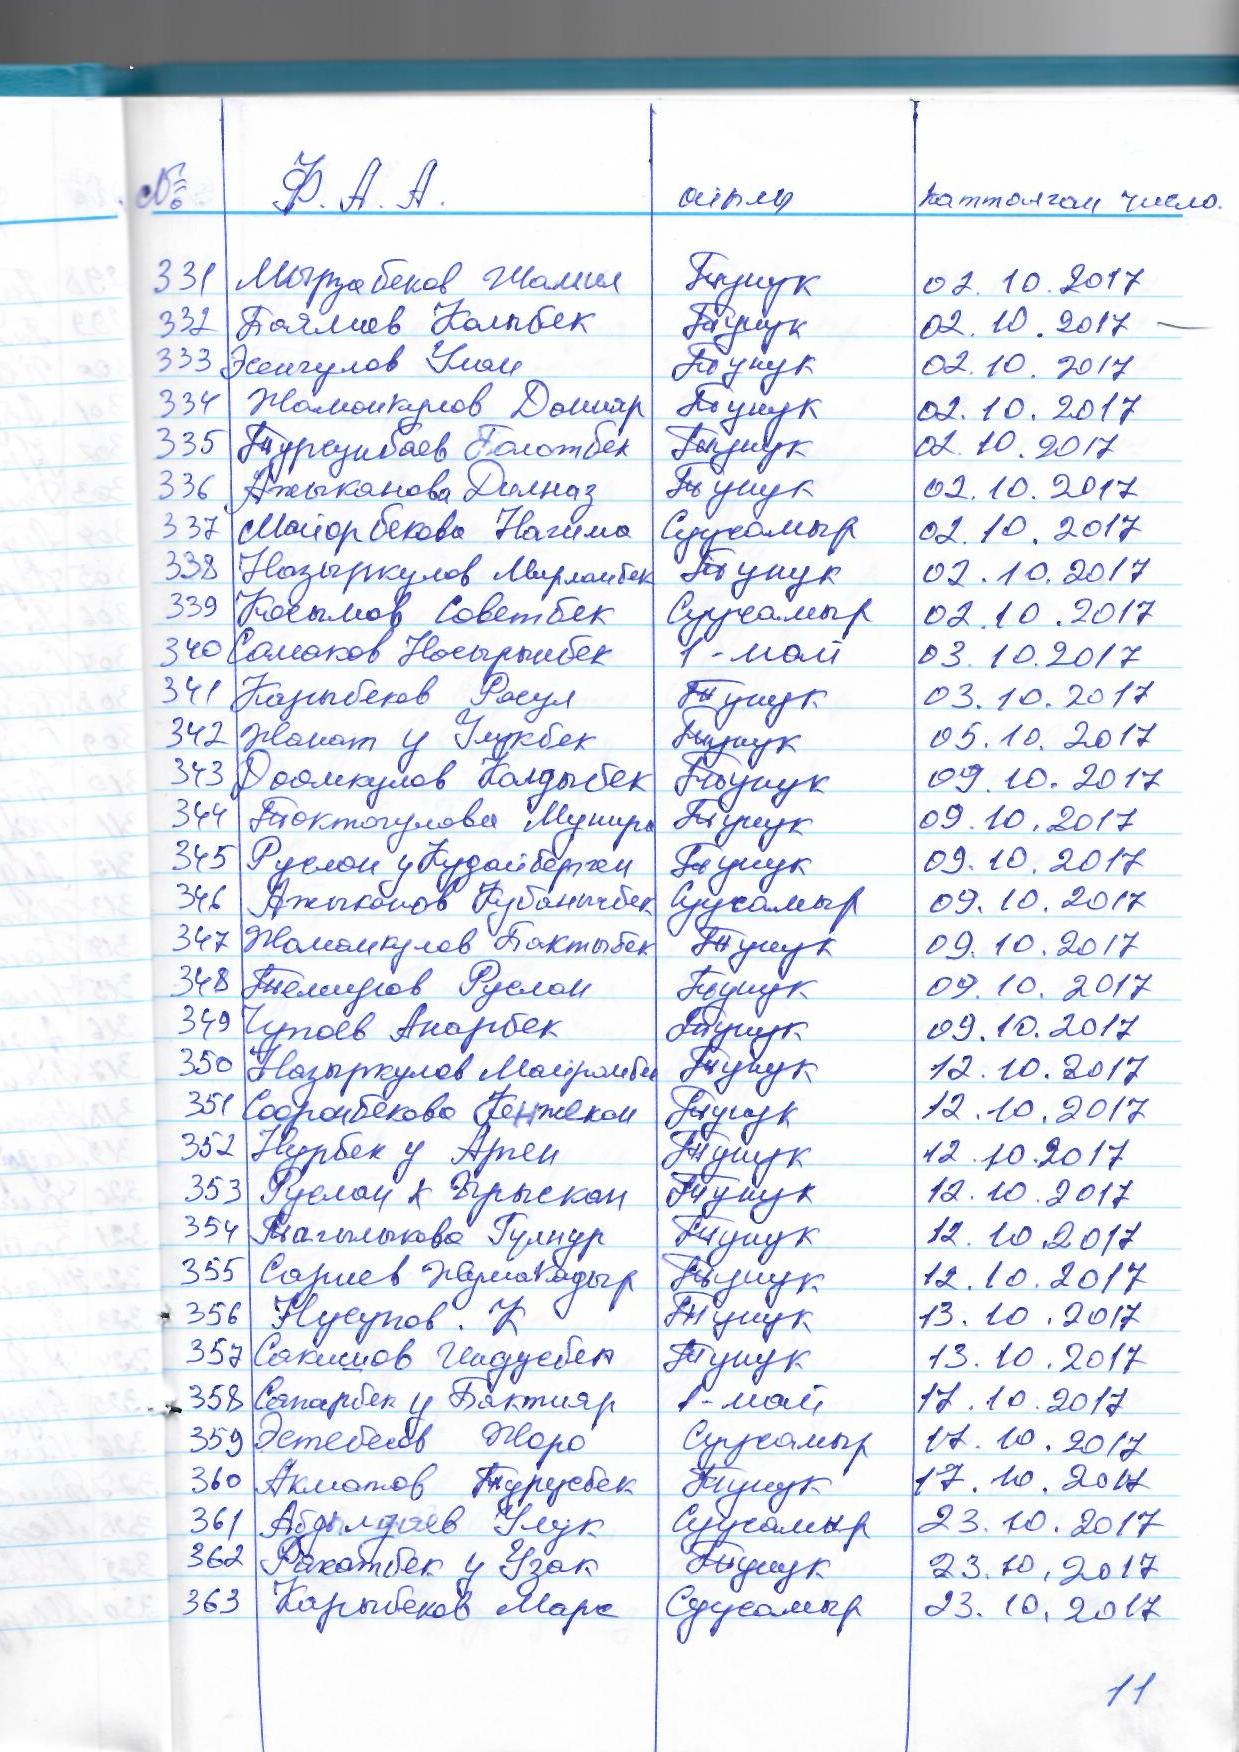 № Ф. А. А. айылы катталган число.
331 Мырзабеков Жамил Тунук 02.10.2017
332 Баялиев Калыбек Тунук 02.10.2017
333 Эсенгулов Улан Тунук 02.10.2017
334 Жаманкулов Данияр Тунук 02.10.2017
335 Турсунбаев Болотбек Тунук 02.10.2017
336 Ажыканова Дилназ Тунук 02.10.2017
337 Майорбекова Нагима Суусамыр 02.10.2017
338 Назыркулов Мирланбек Тунук 02.10.2017
339 Касымов Советбек Суусамыр 02.10.2017
340 Самаков Насырынбек 1-май 03.10.2017
341 Карыбеков Расул Тунук 03.10.2017
342 Жанат у Улукбек Тунук 05.10.2017
343 Доомкулов Калдыбек Тунук 09.10.2017
344 Токтогулова Мунира Тунук 09.10.2017
345 Руслан у Кудайберген Тунук 09.10.2017
346 Ажыканов Кубанычбек Суусамыр 09.10.2017
347 Жаманкулов Бактыбек Тунук 09.10.2017
348 Руслан Тунук 09.10.2017
349 Чупаев Анарбек Тунук 09.10.2017
350 Назыркулов Майрамбек Тунук 12.10.2017
351 Сооромбекова Кенжекан Тунук 12.10.2017
352 Нурбек у Арген Тунук 12.10.2017
353 Руслан к Ырыскан Тунук 12.10.2017
354 Гулнур Тунук 12.10.2017
355 Сариев Жумакадыр Тунук 12.10.2017
356 Нусупов. К Тунук 13.10.2017
357 Тунук 13.10.2017
358 Сапарбек у Бактияр 1-май 17.10.2017
359 Эстебесов Жаро Суусамыр 17.10.2017
360 Акматов Турусбек Тунук 17.10.2017
361 Абдылдаев Улук Суусамыр 23.10.2017
362 Рахатбек у Узак Тунук 23.10.2017
363 Карыбеков Марс Суусамыр 23.10.2017
11